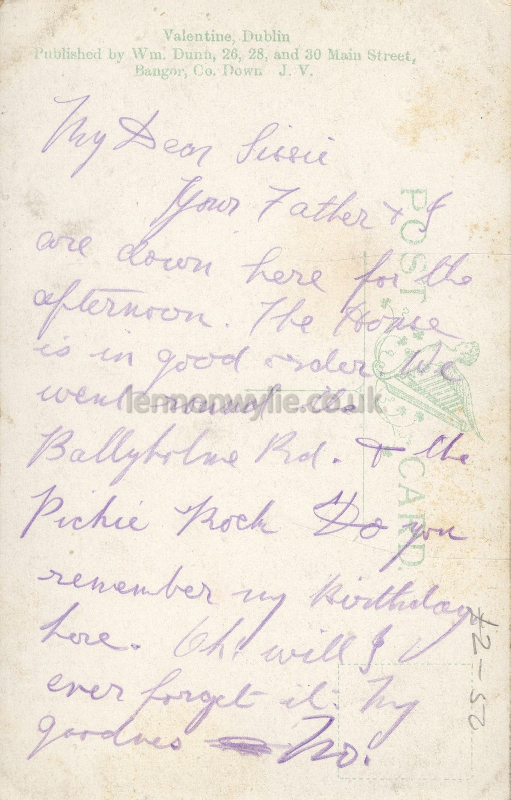 Valentine, Dublin
Published by Wm. Dunn, 26, 28, and 30 Main Street,
Bangor, Co. Down J. V.
POST CARD
My Dear Sissie
Your Father & I
are down here for the
afternoon. The Home
is in good order We
went round the
lennonwylie.co.uk
Ballyholme Rd. & the
Pickie Rock Do you
remember my Birthday
here. Oh. will I
ever forget it. My
goodnes No.
£2-52